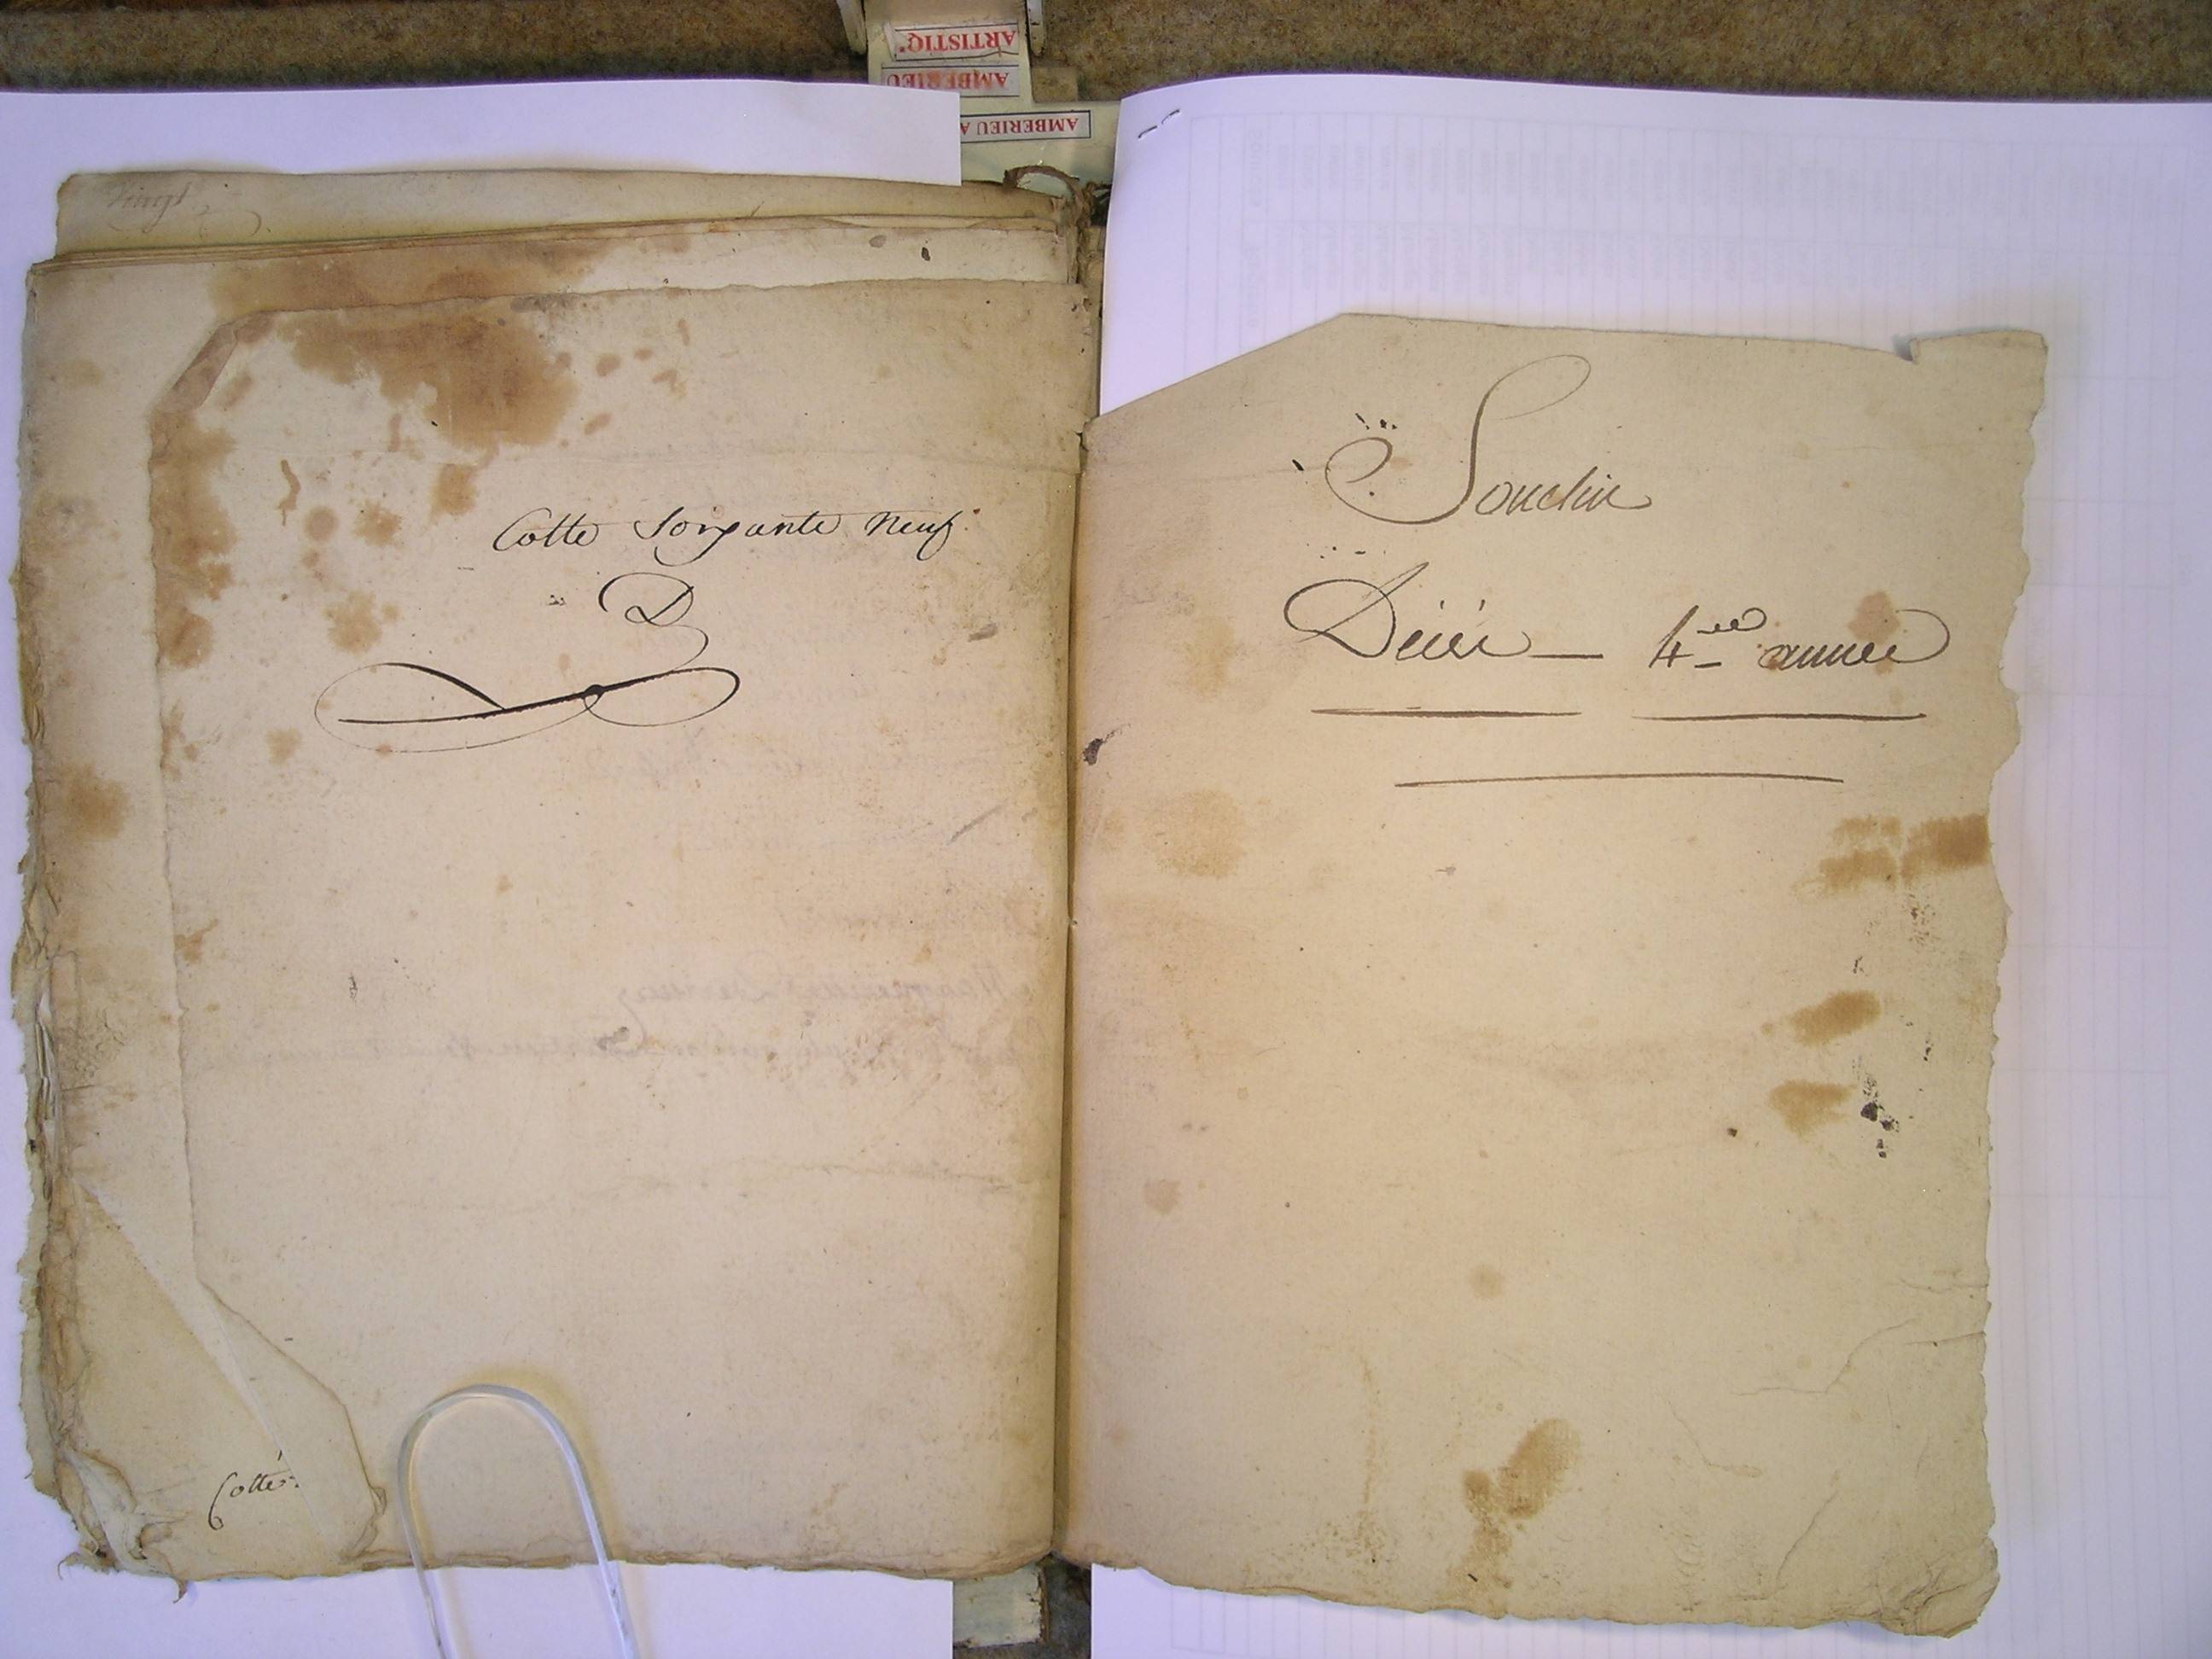 ARTISTIQ'
AMBERIEU
AMBERIEU A
Vingt
Cotte Soixante Neuf
Cotté
Souclin
Décés — 4me année